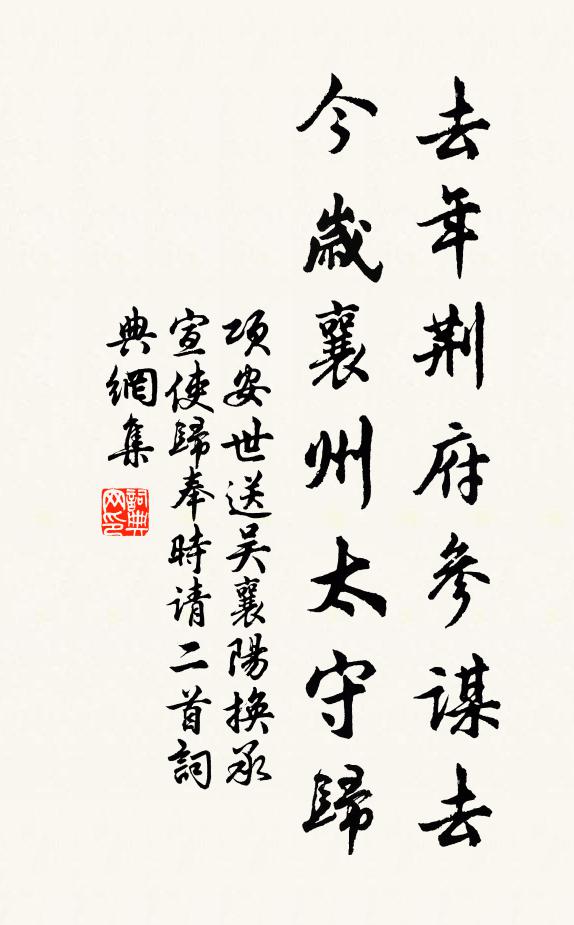 去年荆府參謀去
今歲襄州太守歸
項安世送吴襄陽換承
宣使歸奉時请二首詞
典網集
詞典网印